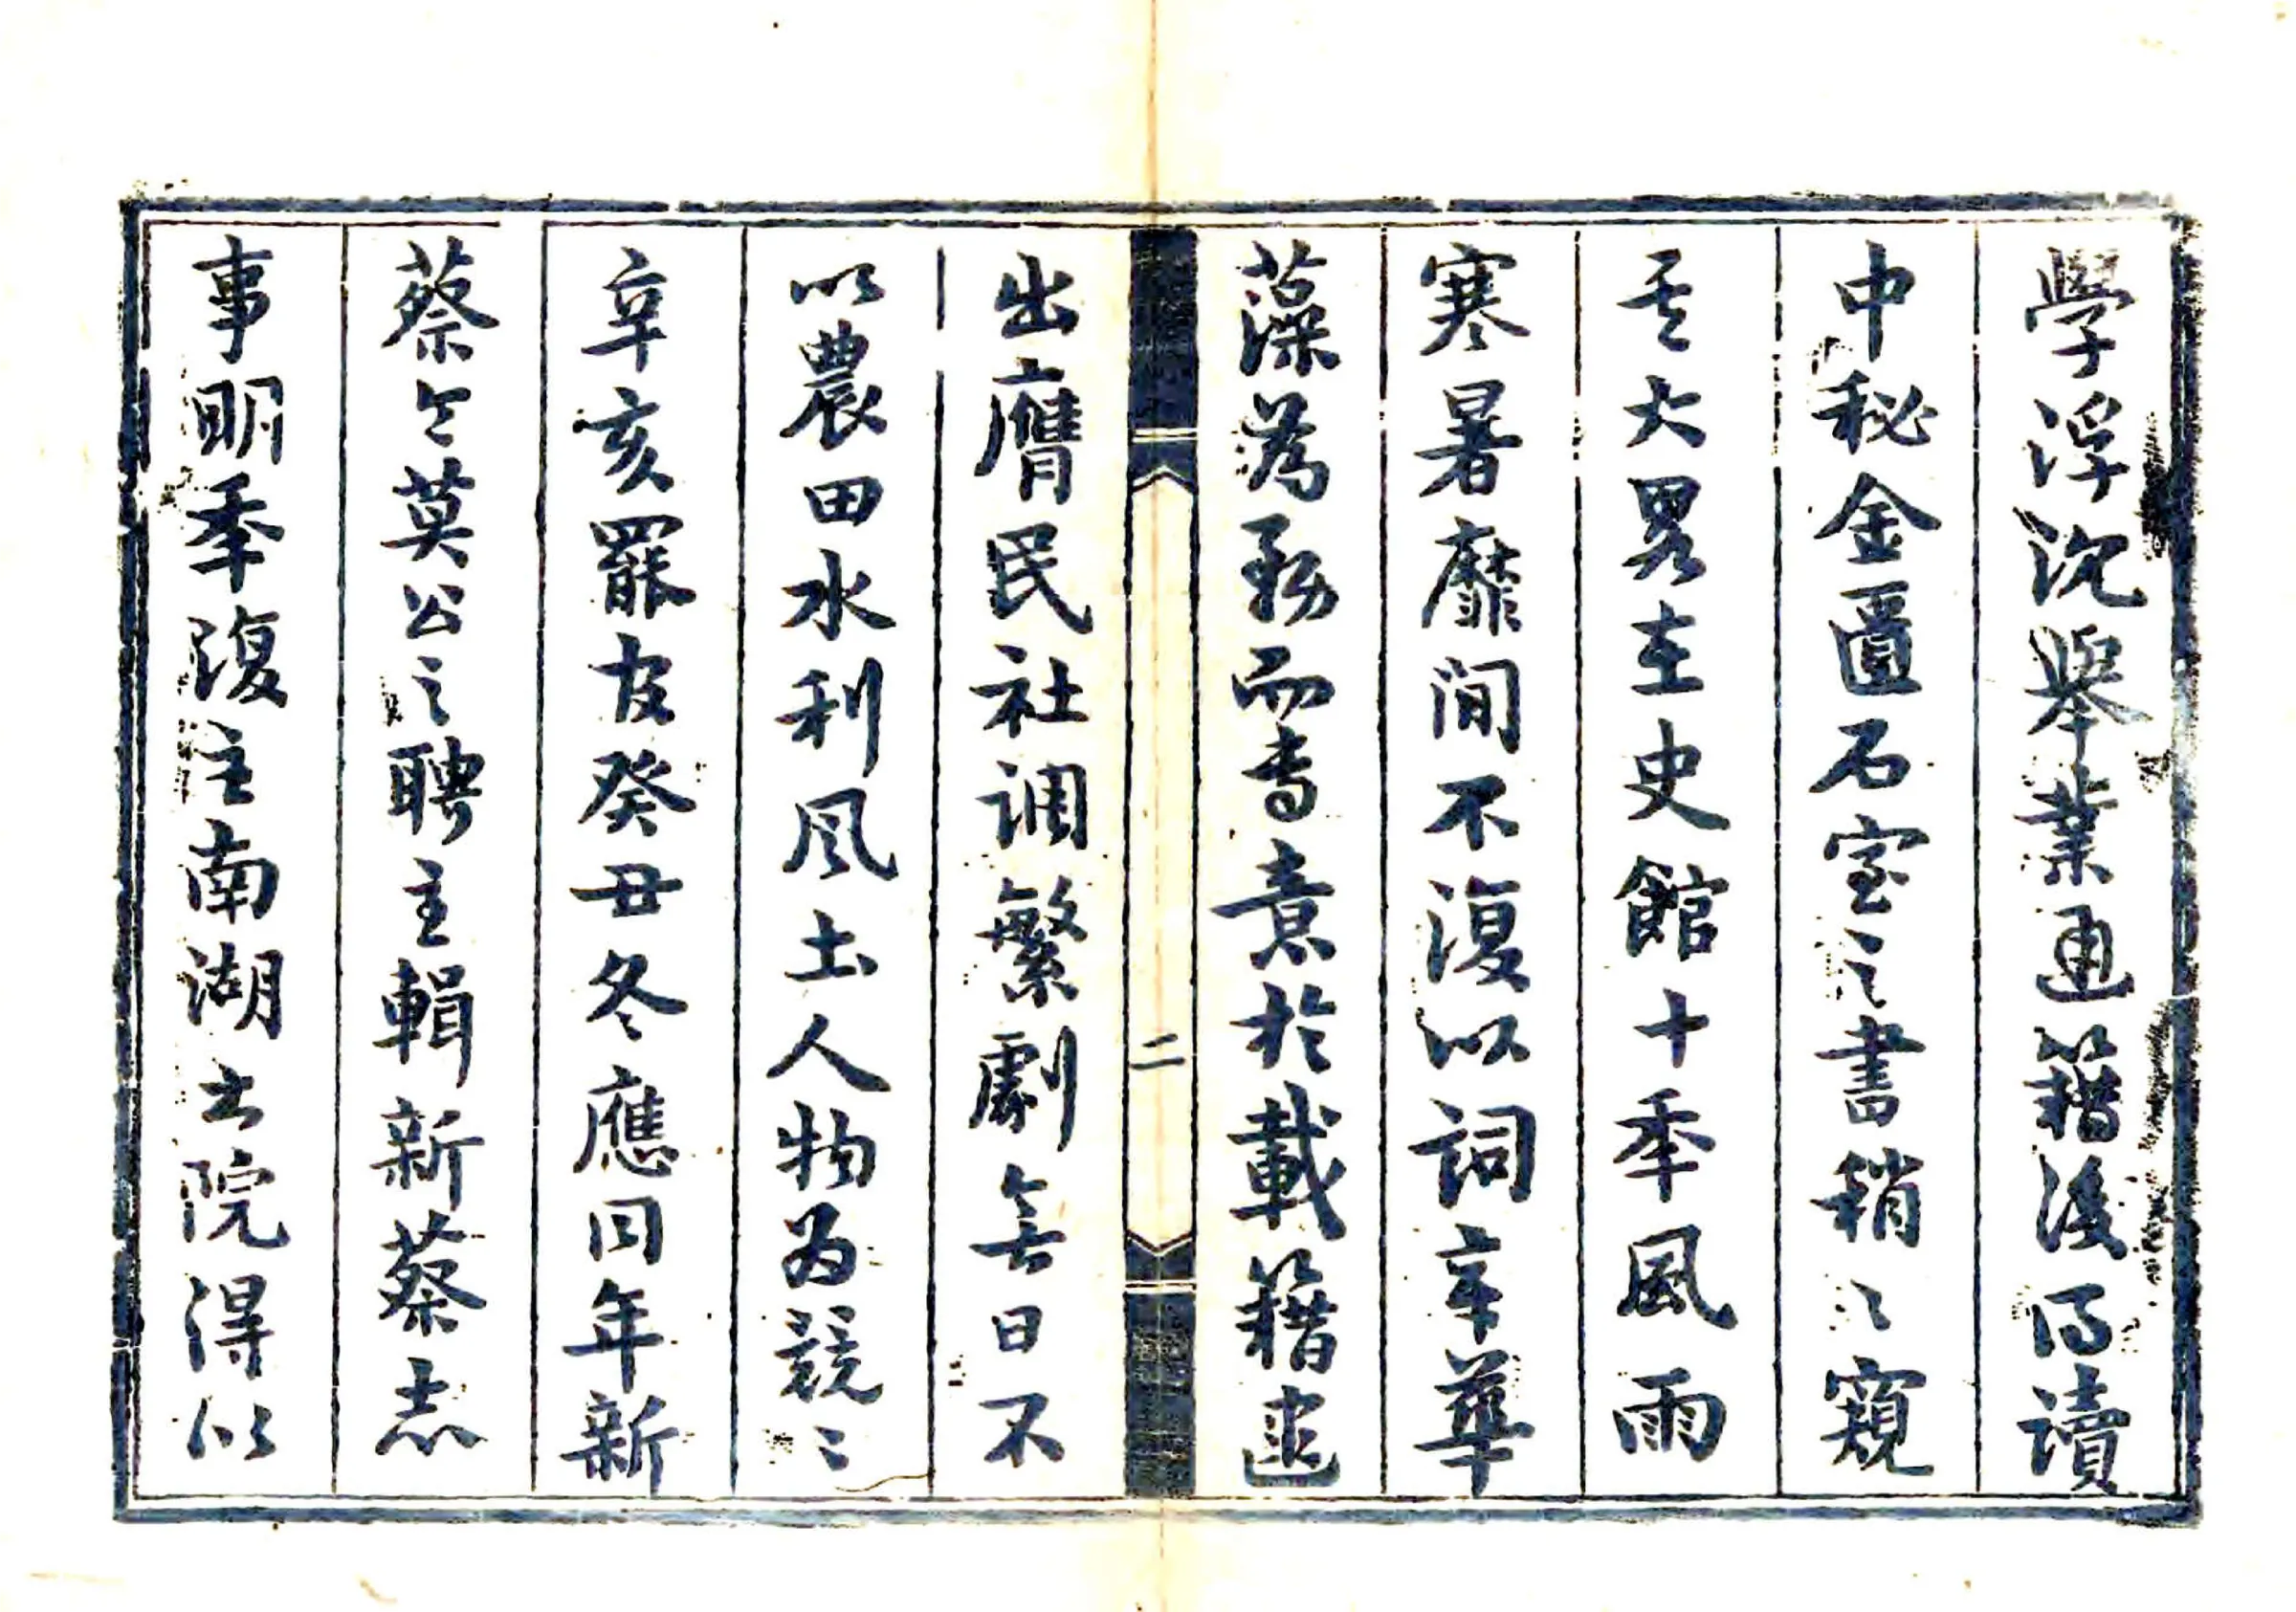 學浮沈舉業通籍後得讀
中秘金匱石室之書稍〻窺
其大畧在史館十季風雨
寒暑靡間不復以詞章華
藻為務而專意於載籍逮
二
出膺民社調繁劇無日不
以農田水利風土人物為兢〻
辛亥罷官癸丑冬應同年新
蔡令莫公之聘主輯新蔡志
事明季復主南湖書院得以